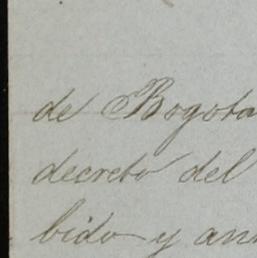 de Bogota
decreto del
bido y an